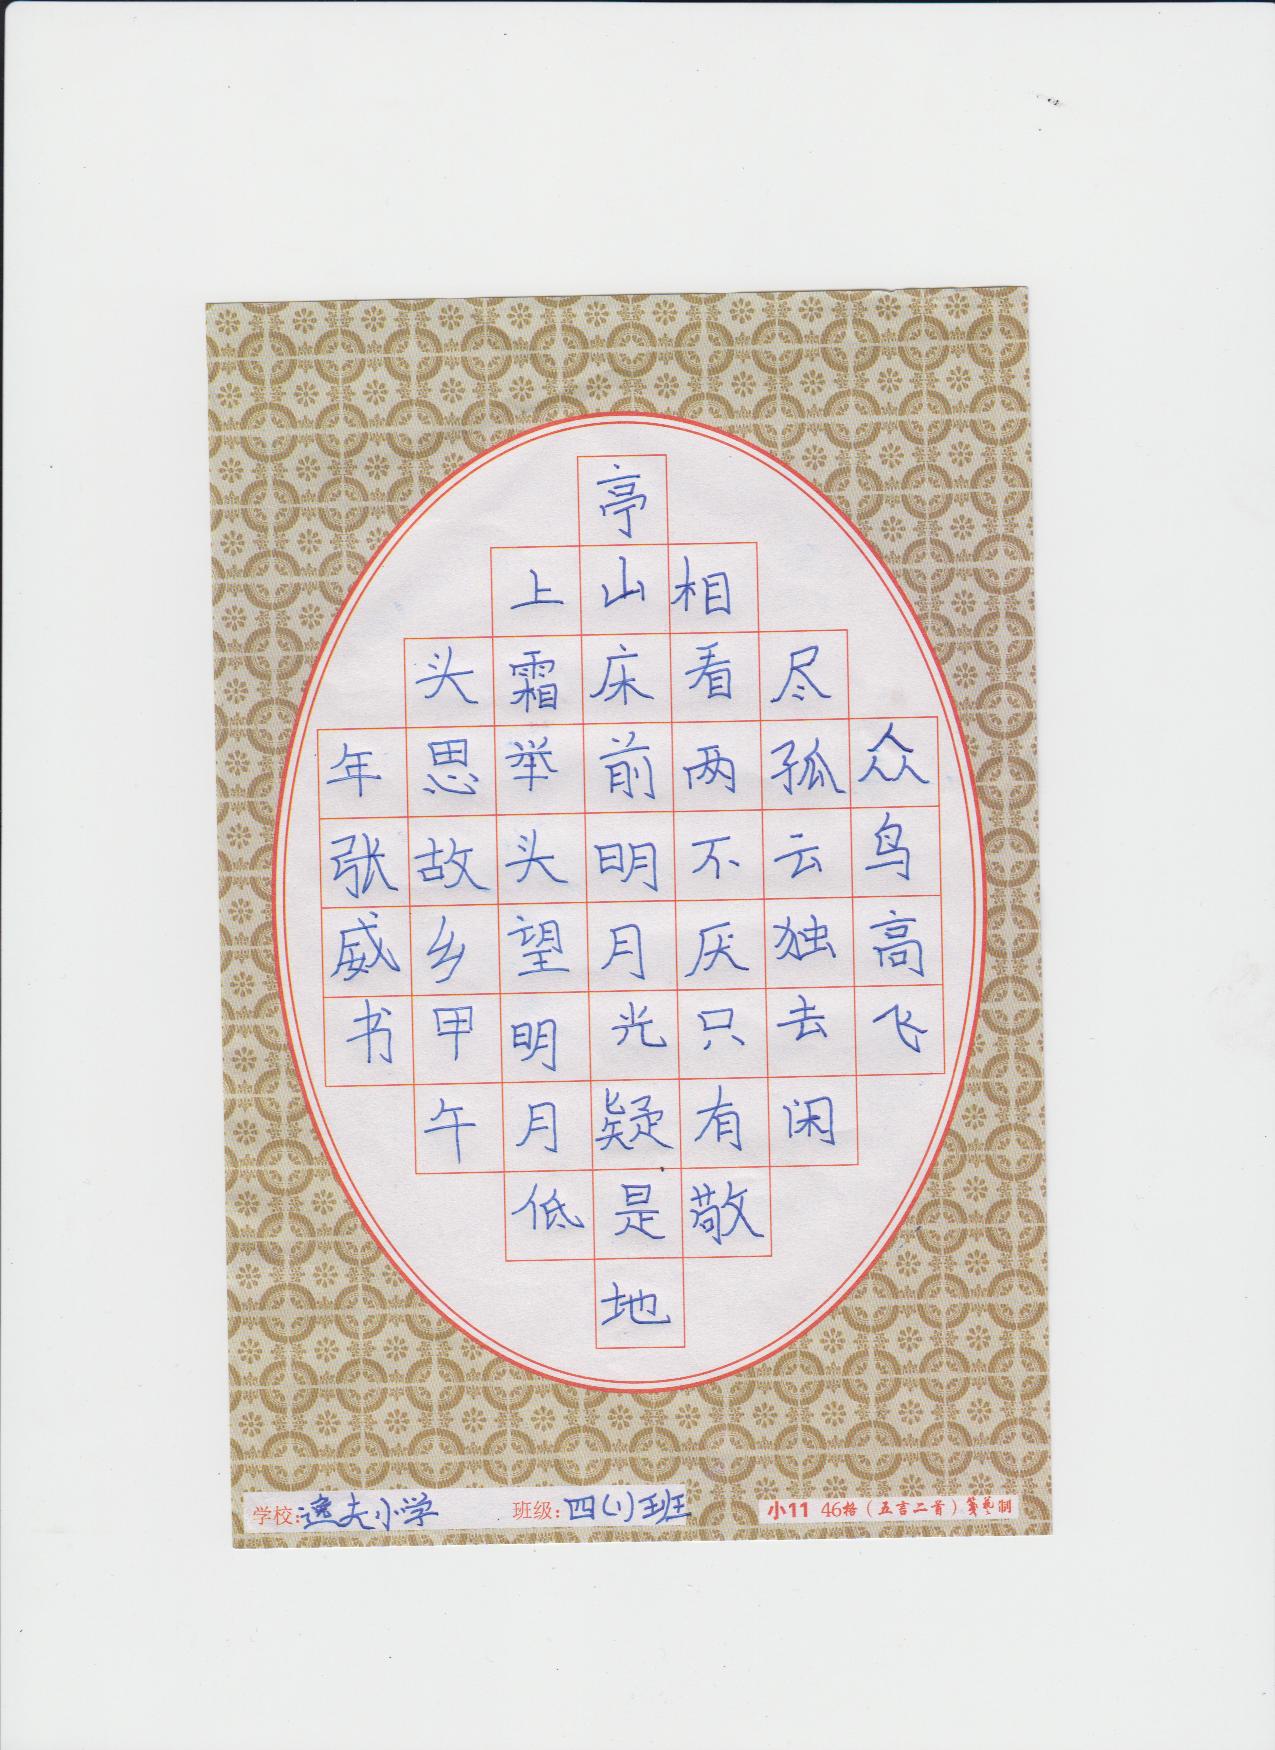 众鸟高飞
尽孤云独去闲
相看两不厌只有敬
亭山床前明月光疑是地
上霜举头望明月低
头思故乡甲午
年张威书
学校:逸夫小学 班级:四(1)班 小11 46格(五言二首)笺艺制